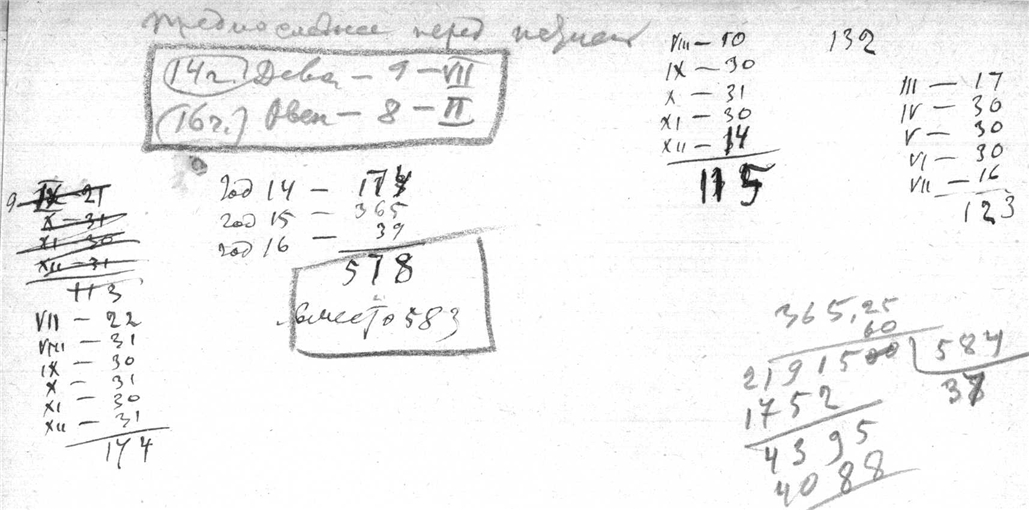 перед
(14г.) Дева – 9 – VII
(16г.) Овен – 8 – II
VIII – 10
IX – 30
X – 31
XI – 30
XII – 14
115
132
III – 17
IV – 30
V – 30
VI – 30
VII – 16
123
9 IX 21
X – 31
XI 30
XII – 31
113
VII – 22
VIII – 31
IX – 30
X – 31
XI – 30
XII – 31
174
год 14 – 174
год 15 – 365
год 16 – 39
578
вместо 583
365,25
60
21915 00 584
37
1752
4395
4088